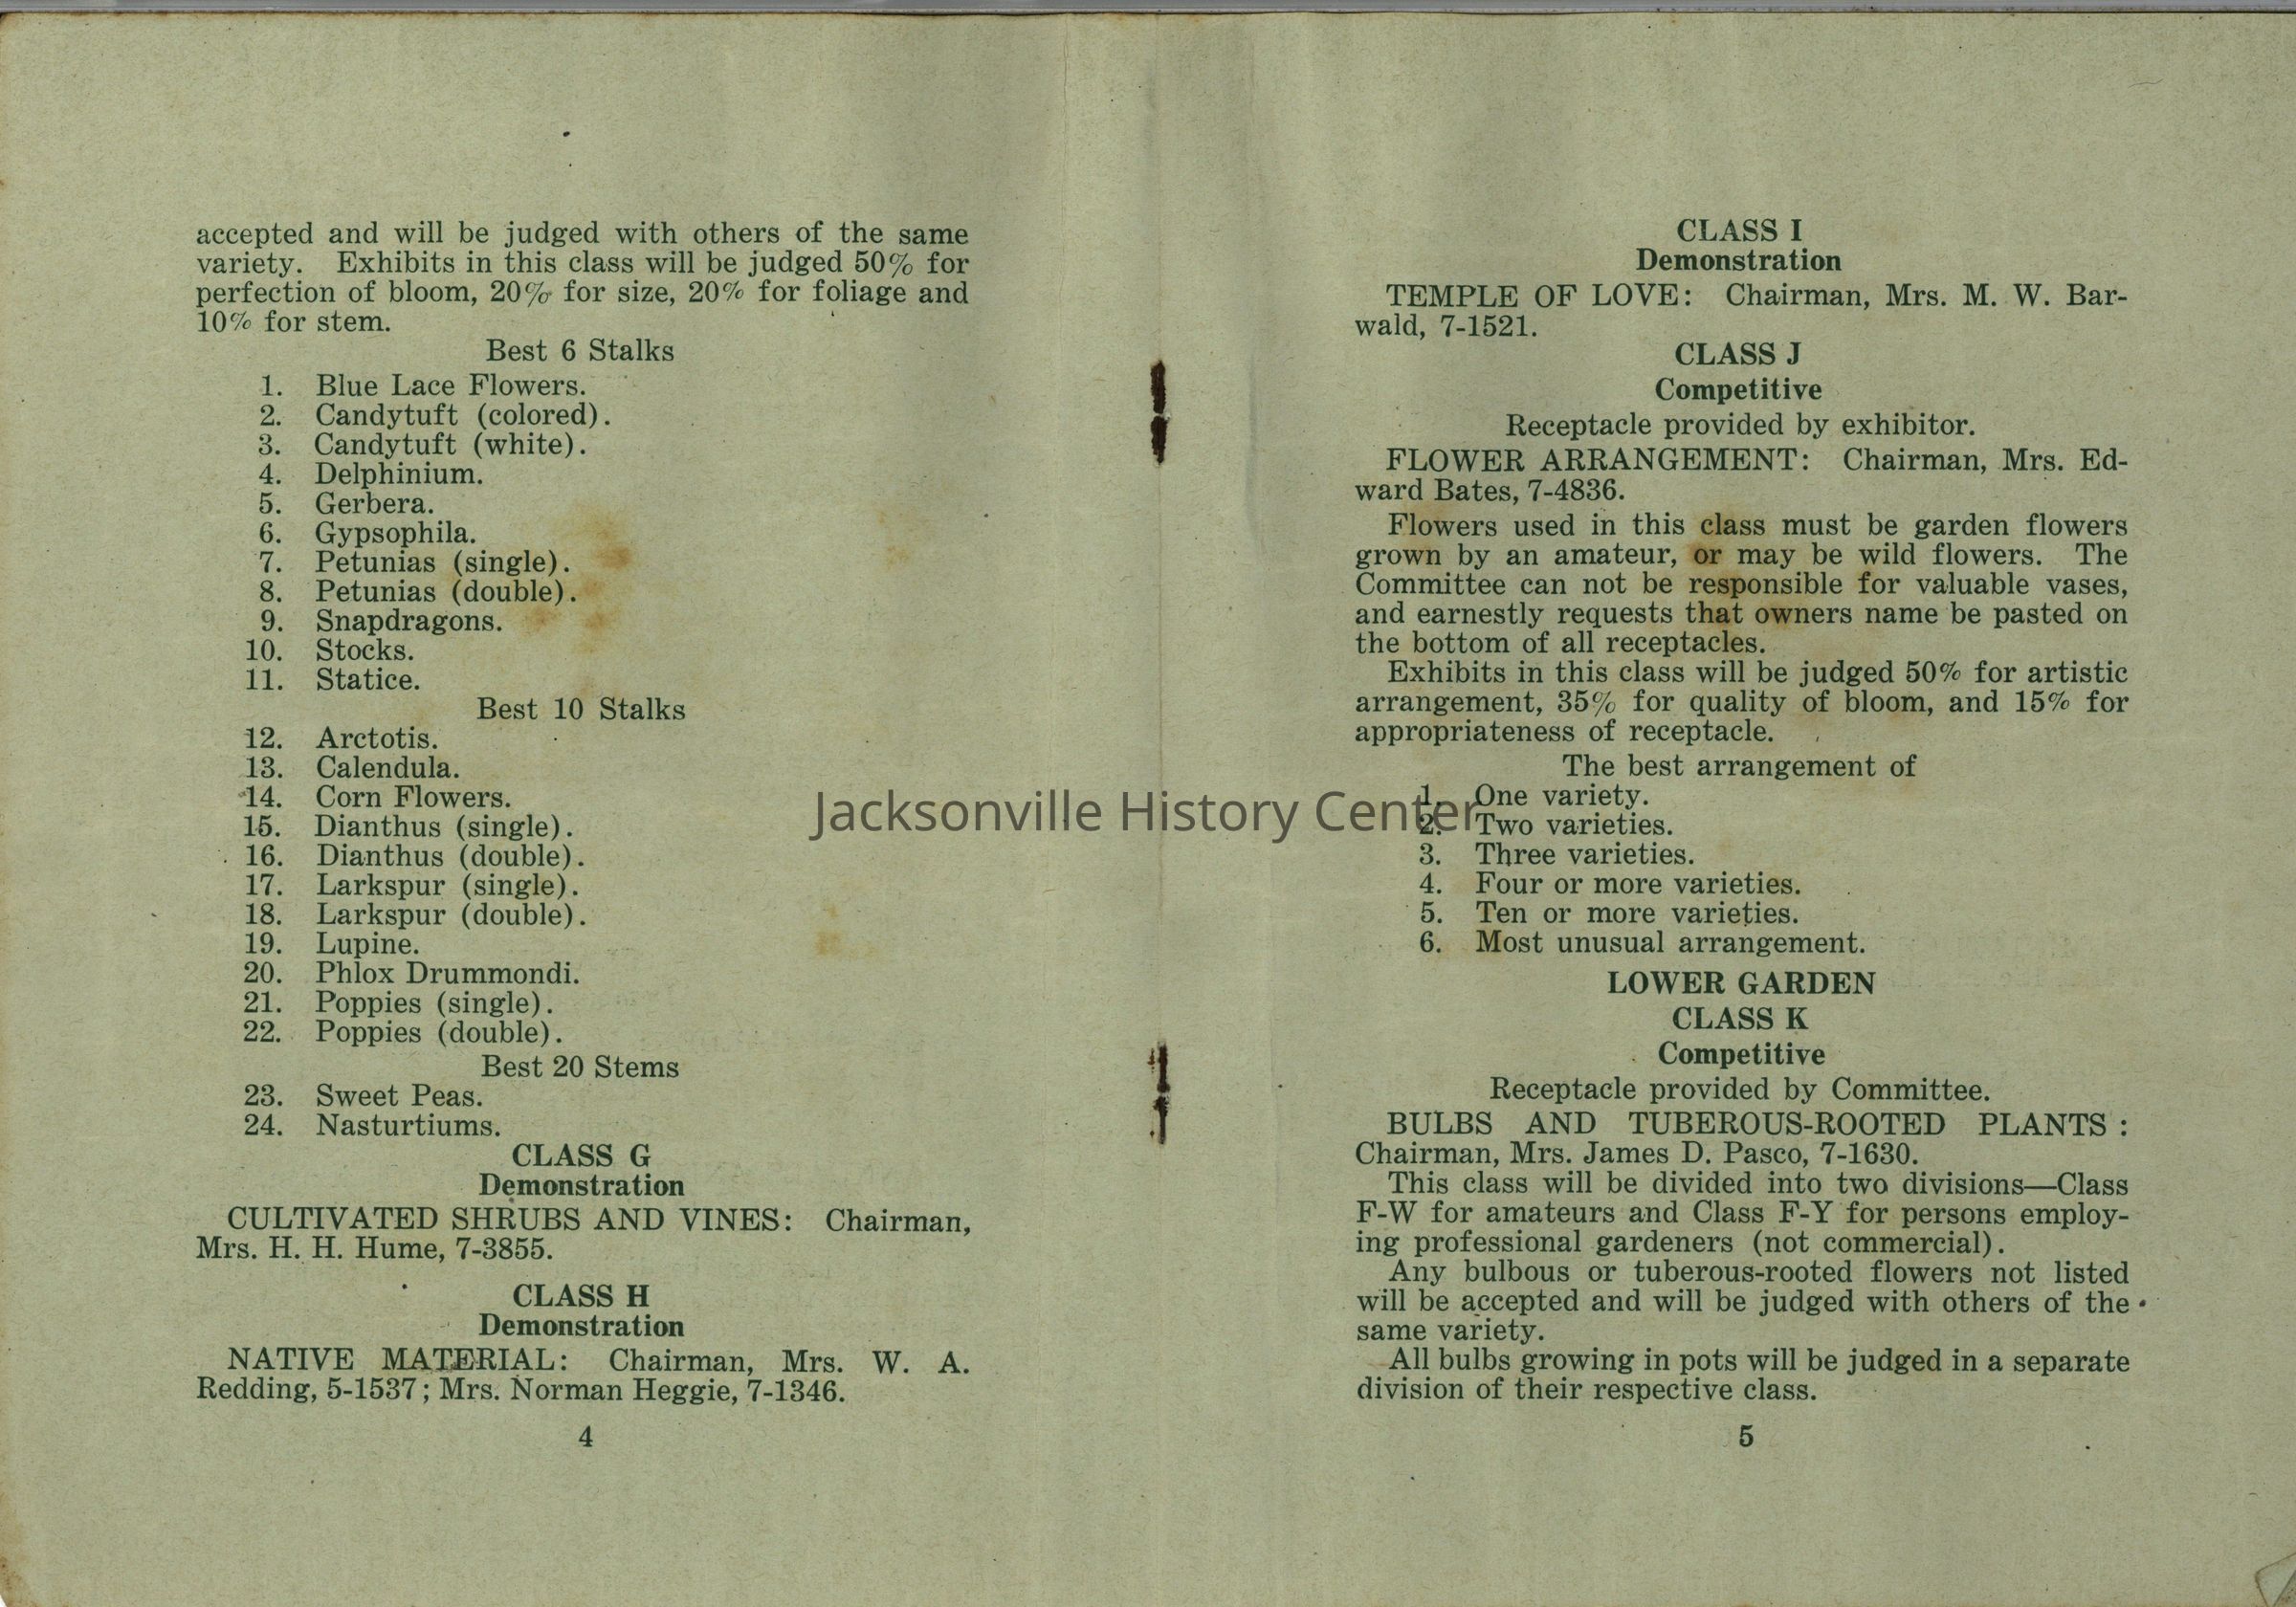 accepted and will be judged with others of the same
variety. Exhibits in this class will be judged 50% for
perfection of bloom, 20% for size, 20% for foliage and
10% for stem.
Best 6 Stalks
1. Blue Lace Flowers.
2. Candytuft (colored).
3. Candytuft (white).
4. Delphinium.
5. Gerbera.
6. Gypsophila.
7. Petunias (single).
8. Petunias (double).
9. Snapdragons.
10. Stocks.
11. Statice.
Best 10 Stalks
12. Arctotis.
13. Calendula.
14. Corn Flowers.
15. Dianthus (single).
16. Dianthus (double).
17. Larkspur (single).
18. Larkspur (double).
19. Lupine.
20. Phlox Drummondi.
21. Poppies (single).
22. Poppies (double).
Best 20 Stems
23. Sweet Peas.
24. Nasturtiums.
CLASS G
Demonstration
CULTIVATED SHRUBS AND VINES: Chairman,
Mrs. H. H. Hume, 7-3855.
CLASS H
Demonstration
NATIVE MATERIAL: Chairman, Mrs. W. A.
Redding, 5-1537; Mrs. Norman Heggie, 7-1346.
4
CLASS I
Demonstration
TEMPLE OF LOVE: Chairman, Mrs. M. W. Bar-
wald, 7-1521.
CLASS J
Competitive
Receptacle provided by exhibitor.
FLOWER ARRANGEMENT: Chairman, Mrs. Ed-
ward Bates, 7-4836.
Flowers used in this class must be garden flowers
grown by an amateur, or may be wild flowers. The
Committee can not be responsible for valuable vases,
and earnestly requests that owners name be pasted on
the bottom of all receptacles.
Exhibits in this class will be judged 50% for artistic
arrangement, 35% for quality of bloom, and 15% for
appropriateness of receptacle.
The best arrangement of
1. One variety.
2. Two varieties.
3. Three varieties.
4. Four or more varieties.
5. Ten or more varieties.
6. Most unusual arrangement.
LOWER GARDEN
CLASS K
Competitive
Receptacle provided by Committee.
BULBS AND TUBEROUS-ROOTED PLANTS:
Chairman, Mrs. James D. Pasco, 7-1630.
This class will be divided into two divisions—Class
F-W for amateurs and Class F-Y for persons employ-
ing professional gardeners (not commercial).
Any bulbous or tuberous-rooted flowers not listed
will be accepted and will be judged with others of the
same variety.
All bulbs growing in pots will be judged in a separate
division of their respective class.
5
Jacksonville History Center